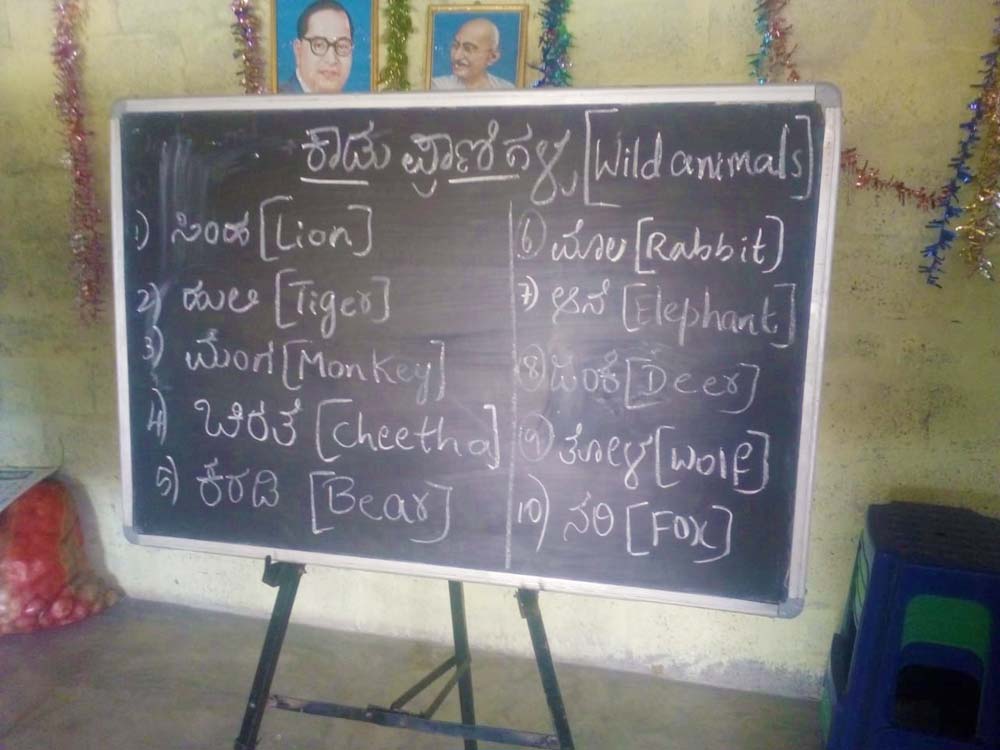 ಕಾಡು ಪ್ರಾಣಿಗಳು [Wild animals]
1) ಸಿಂಹ [Lion]
2) ಹುಲಿ [Tiger]
3) ಮಂಗ [Monkey]
4) ಚಿರತೆ [Cheetha]
5) ಕರಡಿ [Bear]
6) ಮೊಲ [Rabbit]
7) ಆನೆ [Elephant]
8) ಜಿಂಕೆ [Deer]
9) ತೋಳ [Wolf]
10) ನರಿ [Fox]